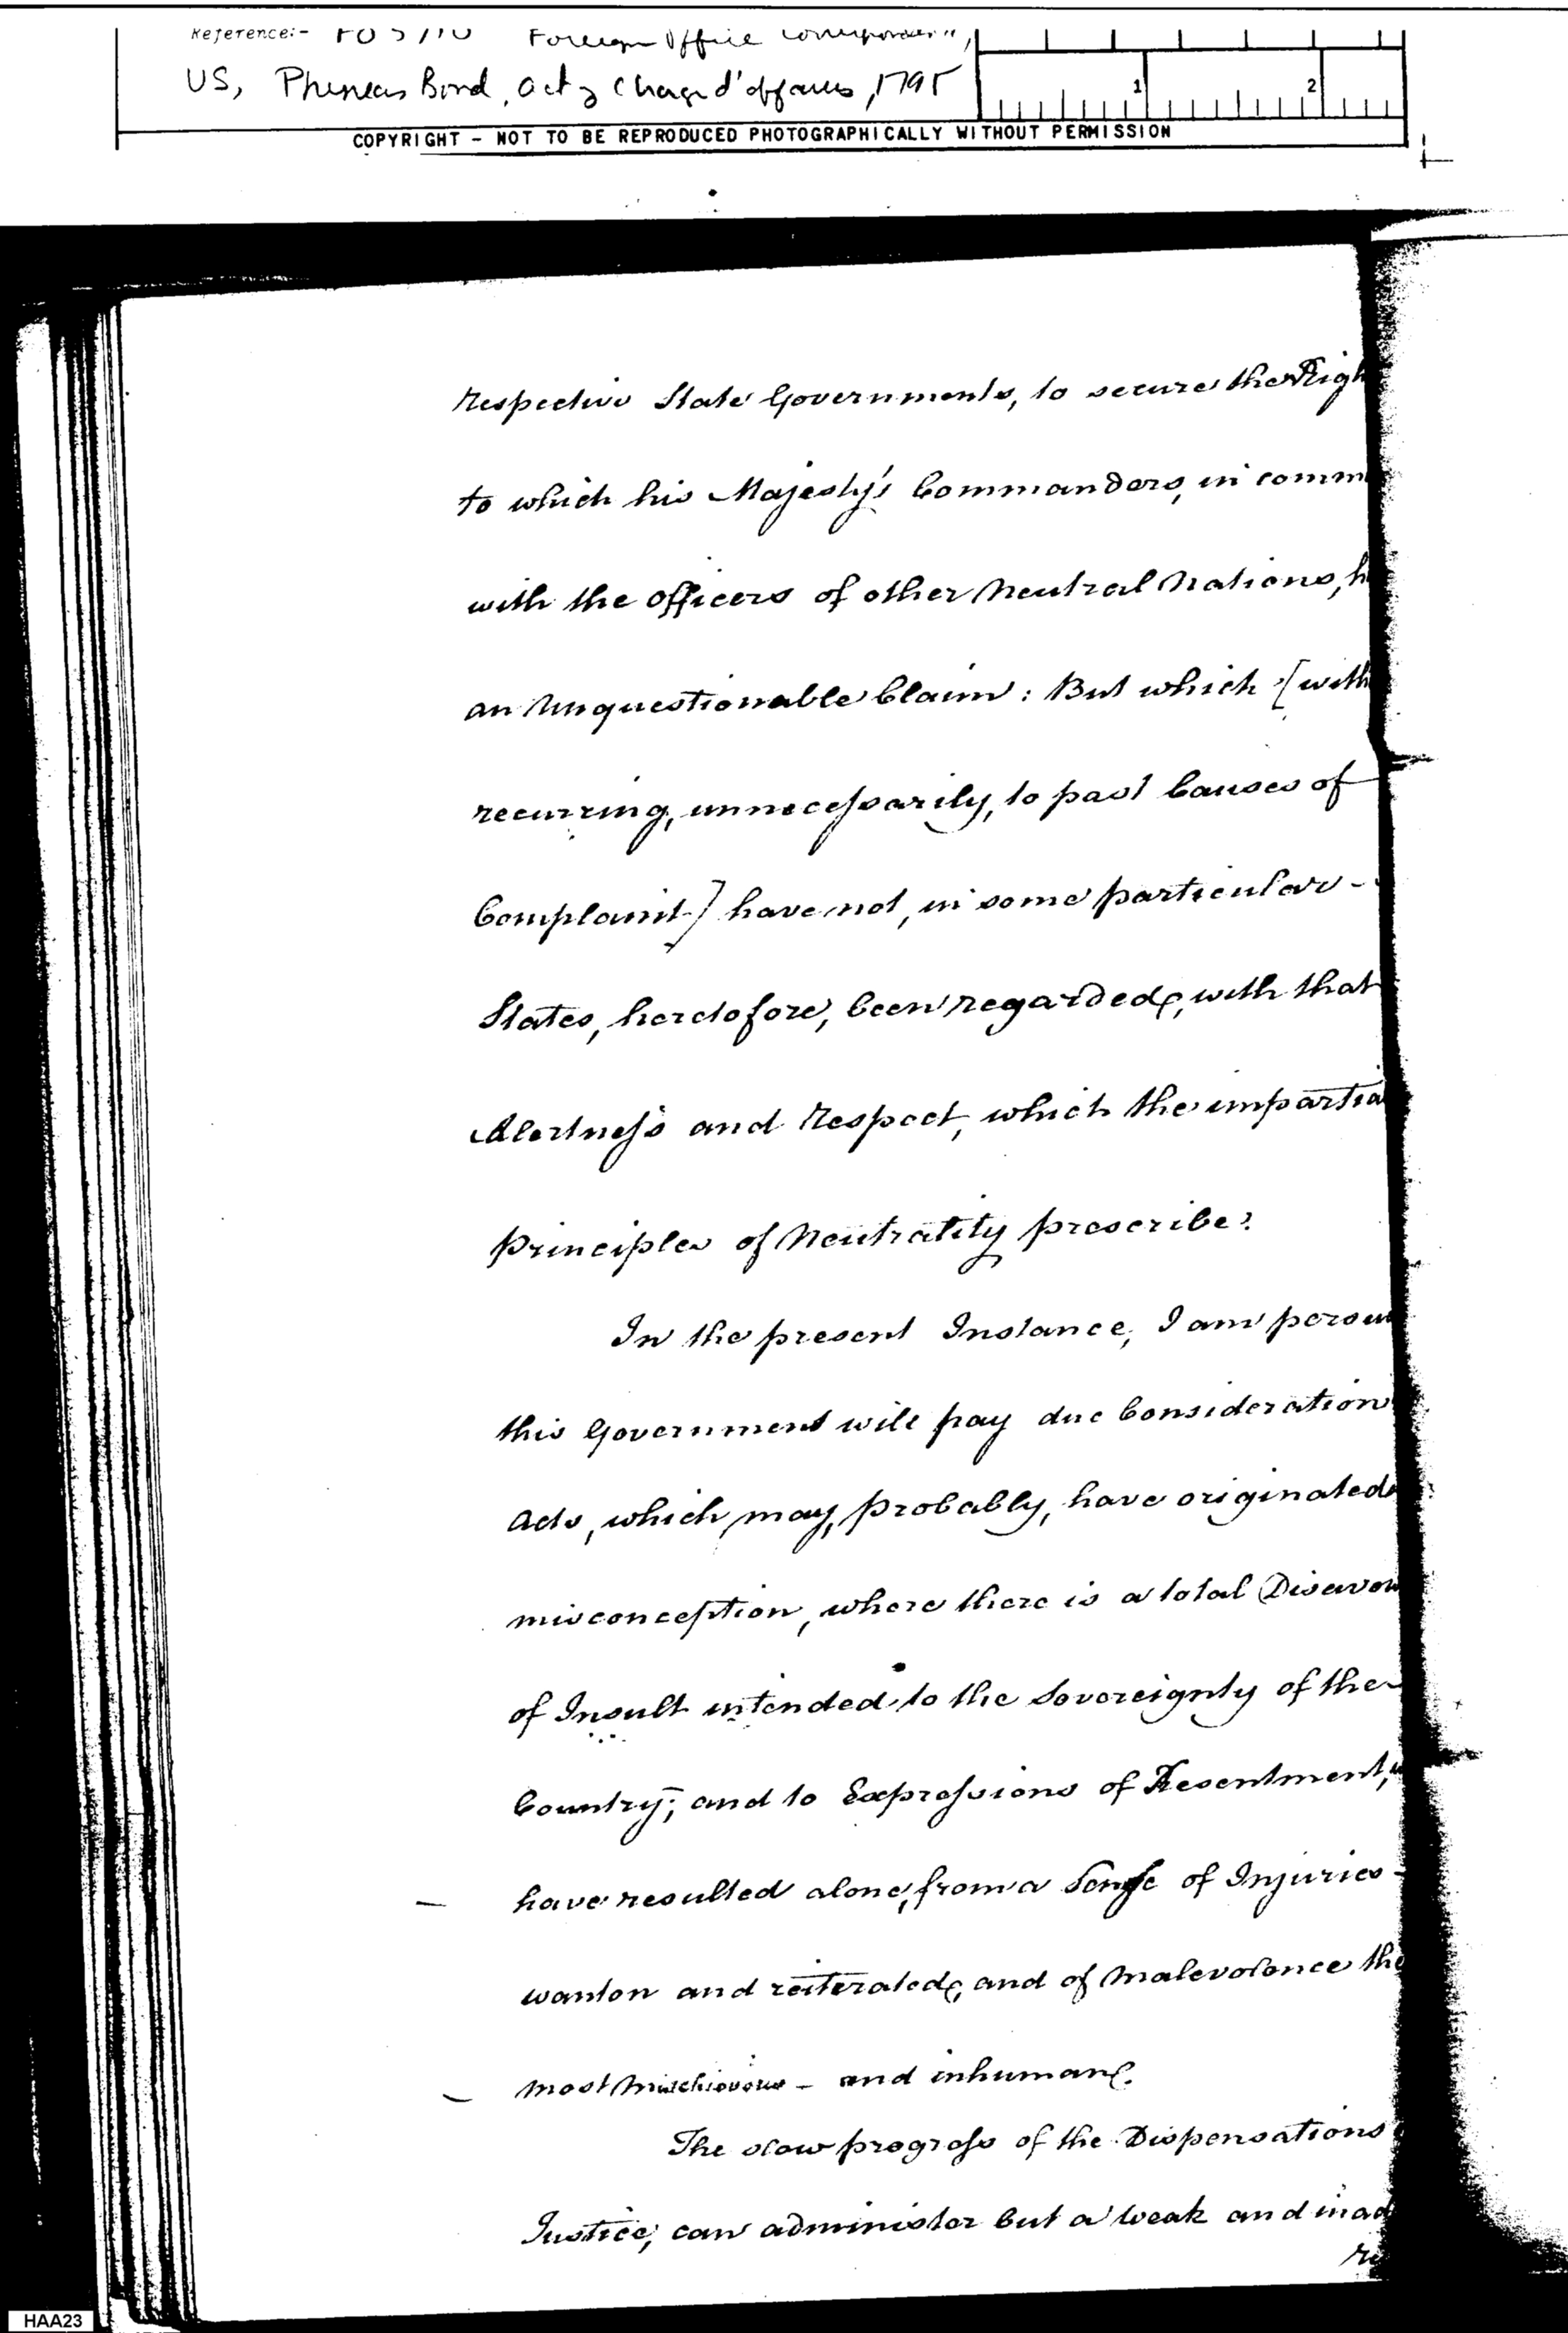 Reference:- FO 5/10 Foreign Office Correspondence,
US, Phineas Bond, actg Chargé d'affaires, 1795
1 2
COPYRIGHT - NOT TO BE REPRODUCED PHOTOGRAPHICALLY WITHOUT PERMISSION
respective State Governments, to secure the Righ
to which his Majesty's Commanders, in comm
with the officers of other Neutral Nations, h
an Unquestionable Claim: But which [with
recurring, unnecessarily, to past Causes of
Complaint] have not, in some particular -
States, heretofore, been regarded, with that
Alertness and Respect, which the impartia
principles of Neutrality prescribe.
In the present Instance, I am persu
this Government will pay due Consideration
acts, which, may, probably, have originated
misconception, where there is a total Disavow
of Insult intended to the Sovereignty of the
Country; and to Expressions of Resentment, w
have resulted alone, from a Sense of Injuries -
wanton and reiterated, and of Malevolence the
most Mischievous - and inhuman.
The slow progress of the Dispensations
Justice, can administer but a weak and inad
re
HAA23